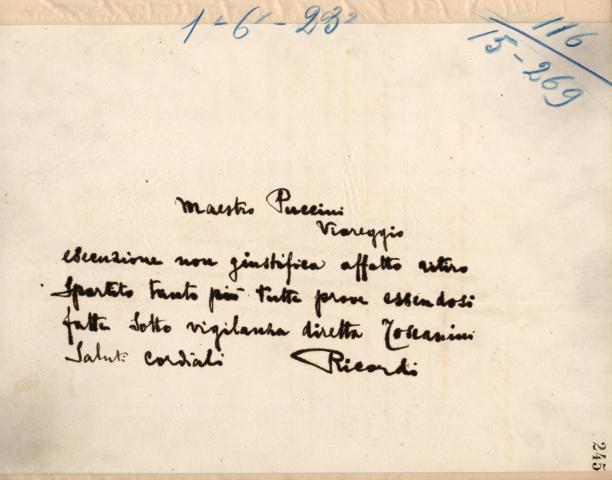 1-6-23
116
15-269
Maestro Puccini
Viareggio
esecuzione non giustifica affatto ritiro
Spartito tanto più tutte prove essendosi
fatte sotto vigilanza diretta Toscanini
Saluti cordiali Ricordi
245